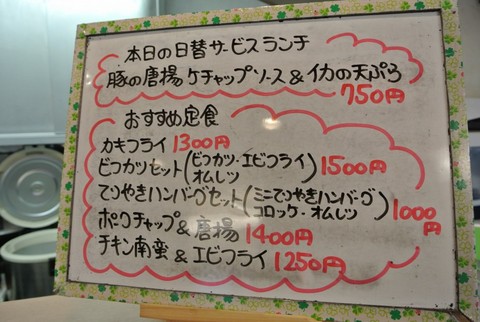 本日の日替サービスランチ
豚の唐揚ケチャップソース&イカの天ぷら
750円
おすすめ定食
カキフライ 1300円
ビフカツセット(ビフカツ・エビフライ オムレツ) 1500円
てりやきハンバーグセット(ミニてりやきハンバーグ コロッケ・オムレツ) 1000円
ポークチャップ&唐揚 1400円
チキン南蛮&エビフライ 1250円